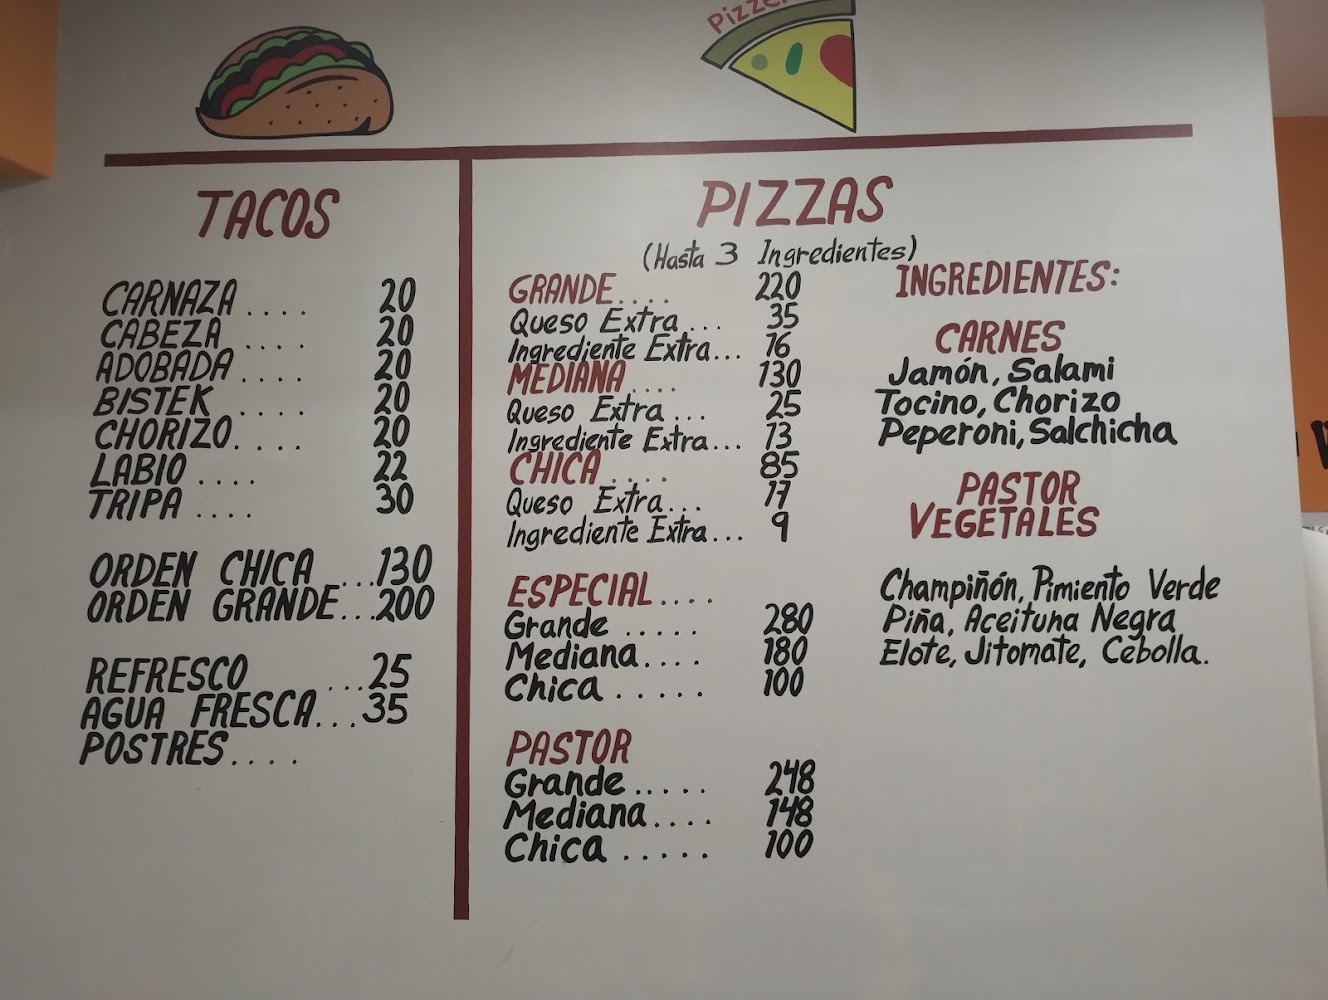 Pizze
TACOS
CARNAZA .... 20
CABEZA .... 20
ADOBADA .... 20
BISTEK .... 20
CHORIZO.... 20
LABIO .... 22
TRIPA .... 30
ORDEN CHICA ...130
ORDEN GRANDE...200
REFRESCO ...25
AGUA FRESCA...35
POSTRES....
PIZZAS
(Hasta 3 Ingredientes)
GRANDE.... 220
Queso Extra ... 35
Ingrediente Extra... 16
MEDIANA .... 130
Queso Extra ... 25
Ingrediente Extra... 13
CHICA .... 85
Queso Extra... 17
Ingrediente Extra... 9
ESPECIAL....
Grande ..... 280
Mediana.... 180
Chica ..... 100
PASTOR
Grande ..... 248
Mediana.... 148
Chica ..... 100
INGREDIENTES:
CARNES
Jamón, Salami
Tocino, Chorizo
Peperoni, Salchicha
PASTOR
VEGETALES
Champiñón, Pimiento Verde
Piña, Aceituna Negra
Elote, Jitomate, Cebolla.